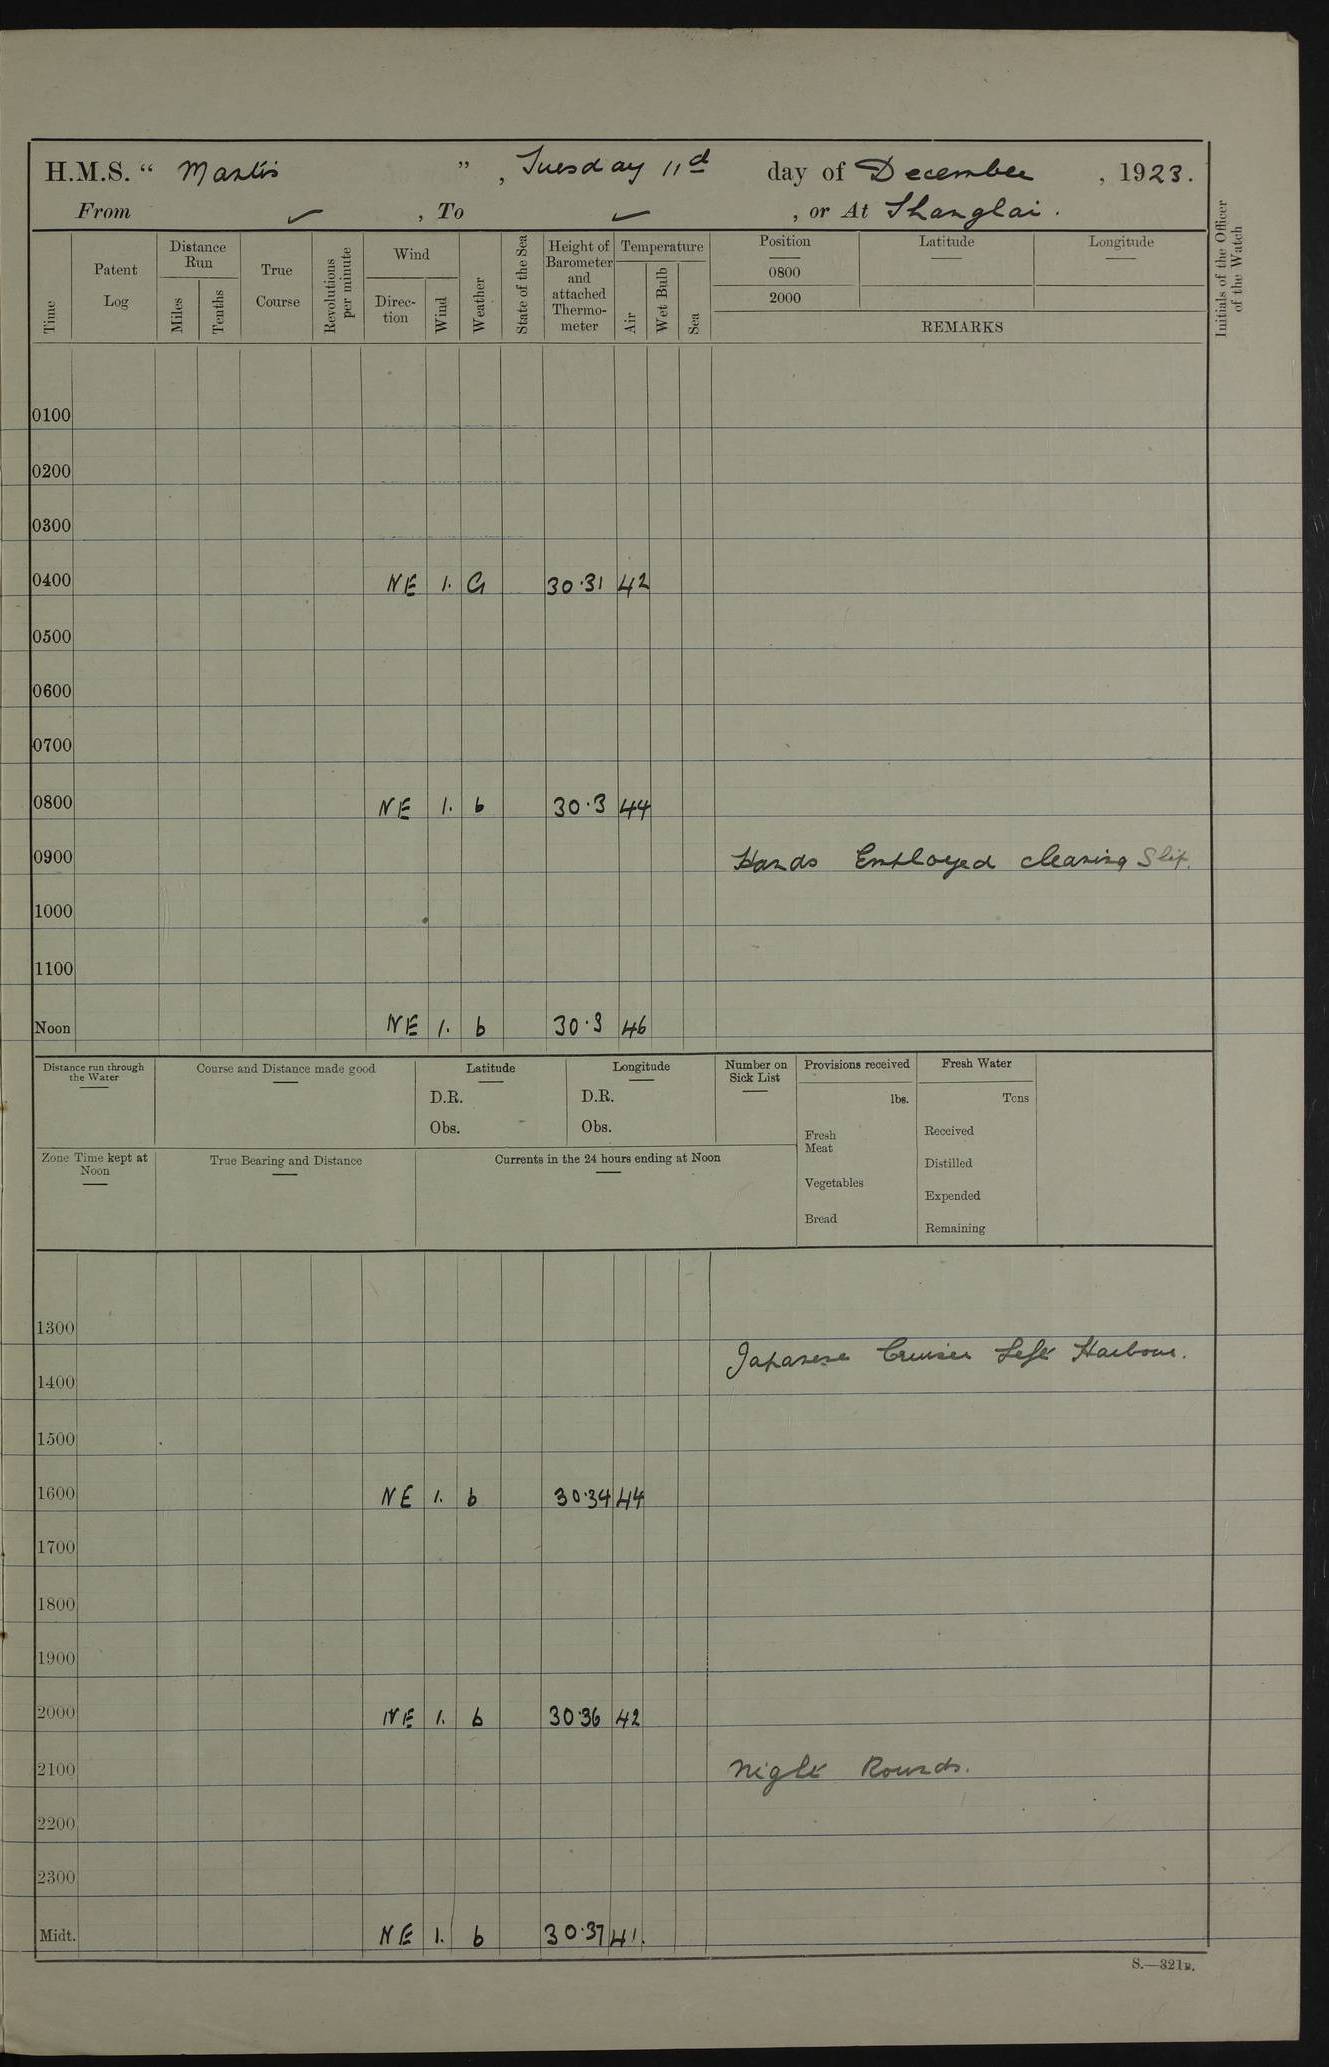 H.M.S. “ Mantis ” , Tuesday 11d day of December , 1923.
From ✓ , To ✓ , or At Shanghai .
Time
Patent Log
Distance Run
Miles
Tenths
True Course
Revolutions per minute
Wind
Direc-tion
Wind
Weather
State of the Sea
Height of Barometer and attached Thermo-meter
Temperature
Air
Wet Bulb
Sea
Position
0800
2000
Latitude
Longitude
REMARKS
Initials of the Officer of the Watch
0100
0200
0300
0400 NE 1. G 30.31 42
0500
0600
0700
0800 NE 1. b 30.3 44
0900 Hands Employed cleaning Ship.
1000
1100
Noon NE 1. b 30.3 46
Distance run through the Water
Course and Distance made good
Latitude
D.R.
Obs.
Longitude
D.R.
Obs.
Number on Sick List
Provisions received
lbs.
Fresh Meat
Vegetables
Bread
Fresh Water
Tons
Received
Distilled
Expended
Remaining
Zone Time kept at Noon
True Bearing and Distance
Currents in the 24 hours ending at Noon
1300
Japanese Cruiser Left Harbour.
1400
1500
1600 NE 1. b 30.34 44
1700
1800
1900
2000 NE 1. b 30.36 42
2100 Night Rounds.
2200
2300
Midt. NE 1. b 30.37 41.
S.—321B.